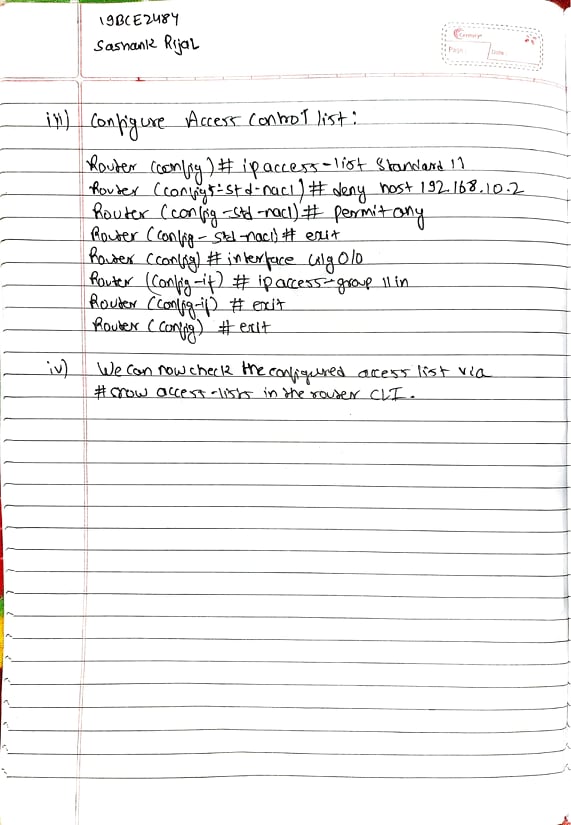 19BCE2484
Sashank Rijal
Page:
Date:
iii) Configure Access Control list:
Router (config) # ip access-list Standard 11
Router (config-std-nacl) # deny host 192.168.10.2
Router (config-std-nacl) # permit any
Router (config-std-nacl) # exit
Router (config) # interface Gig 0/0
Router (config-if) # ip access-group 11 in
Router (config-if) # exit
Router (config) # exit
iv) We can now check the configured acess list via
# show access-lists in the router CLI.